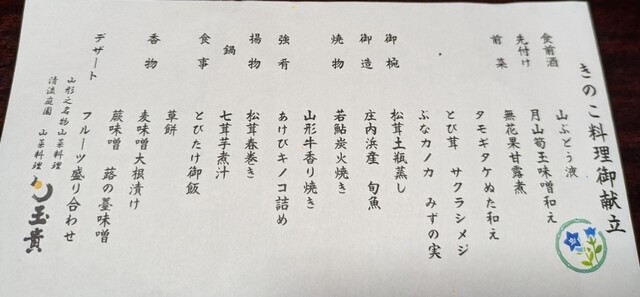 きのこ料理御献立
食前酒 山ぶどう液
先付け 月山筍玉味噌和え
前菜 無花果甘露煮
タモギタケぬた和え
とび茸 サクラシメジ
ぶなカノカ みずの実
御椀 松茸土瓶蒸し
御造 庄内浜産 旬魚
焼物 若鮎炭火焼き
山形牛香り焼き
強肴 あけびキノコ詰め
揚物 松茸春巻き
鍋 七茸芋煮汁
食事 とびたけ御飯
草餅
香物 麦味噌大根漬け
蕨味噌 蕗の薹味噌
デザート フルーツ盛り合わせ
山形之名物山菜料理
清流庭園 山菜料理
玉貴